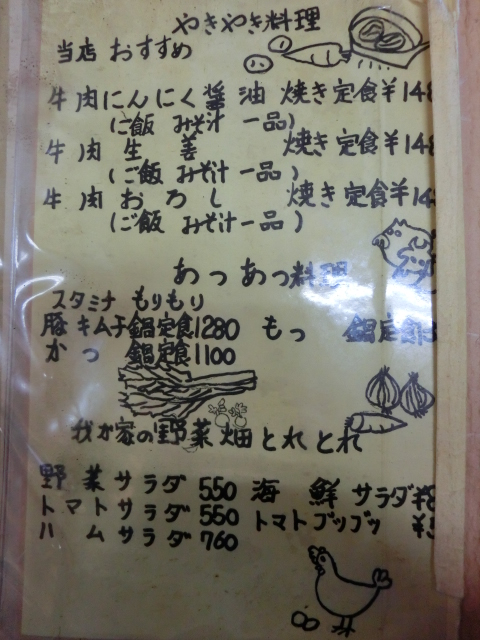 やきやき料理
当店 おすすめ
牛肉にんにく醤油 焼き定食¥148
(ご飯 みそ汁 一品)
牛肉 生姜 焼き定食¥148
(ご飯 みそ汁 一品)
牛肉 おろし 焼き定食¥14
(ご飯 みそ汁 一品)
あつあつ料理
スタミナ もりもり
豚キムチ鍋定食1280 もつ 鍋定食
かつ 鍋定食1100
我が家の野菜畑とれとれ
野菜サラダ 550 海鮮サラダ¥8
トマトサラダ 550 トマトゴツゴツ ¥5
ハムサラダ 760